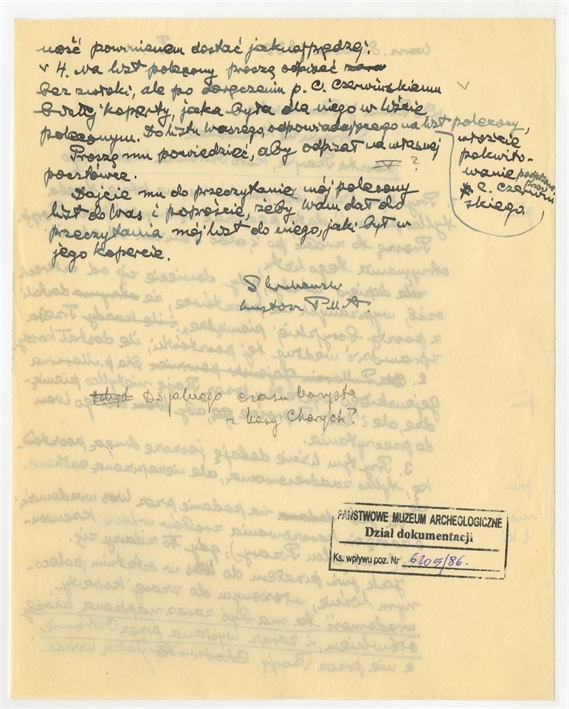 ność powinienem dostać jaknajprędzej.
v 4. Na list polecony proszę odpisać zaraz
bez zwłoki, ale po doręczeniu p. C. Czerwińskiemu
białej koperty, jaka była dla niego w liście
poleconym. Do listu Waszego, odpowiadającego na list polecony,
włóżcie
pokwito-
wanie podpisane
przez
p. C. Czerwiń-
skiego.
Proszę mu powiedzieć, aby odpisał na własnej
pocztówce.
?
Dajcie mu do przeczytania mój polecony
list do Was i poproście, żeby Wam dał do
przeczytania mój list do niego, jaki był w
jego kopercie.
kustosz P.M.A.
Od jakiego czasu korzysta
z Kasy Chorych?
PAŃSTWOWE MUZEUM ARCHEOLOGICZNE
Dział dokumentacji
Ks. wpływu poz. Nr 6205/86.